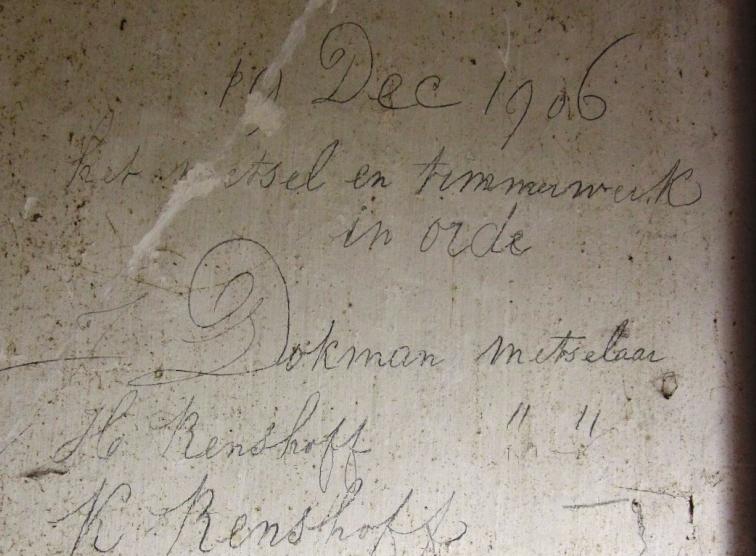 19 Dec 1906
het metsel en timmerwerk
in orde
Dokman metselaar
H Renshoff " "
K Renshoff